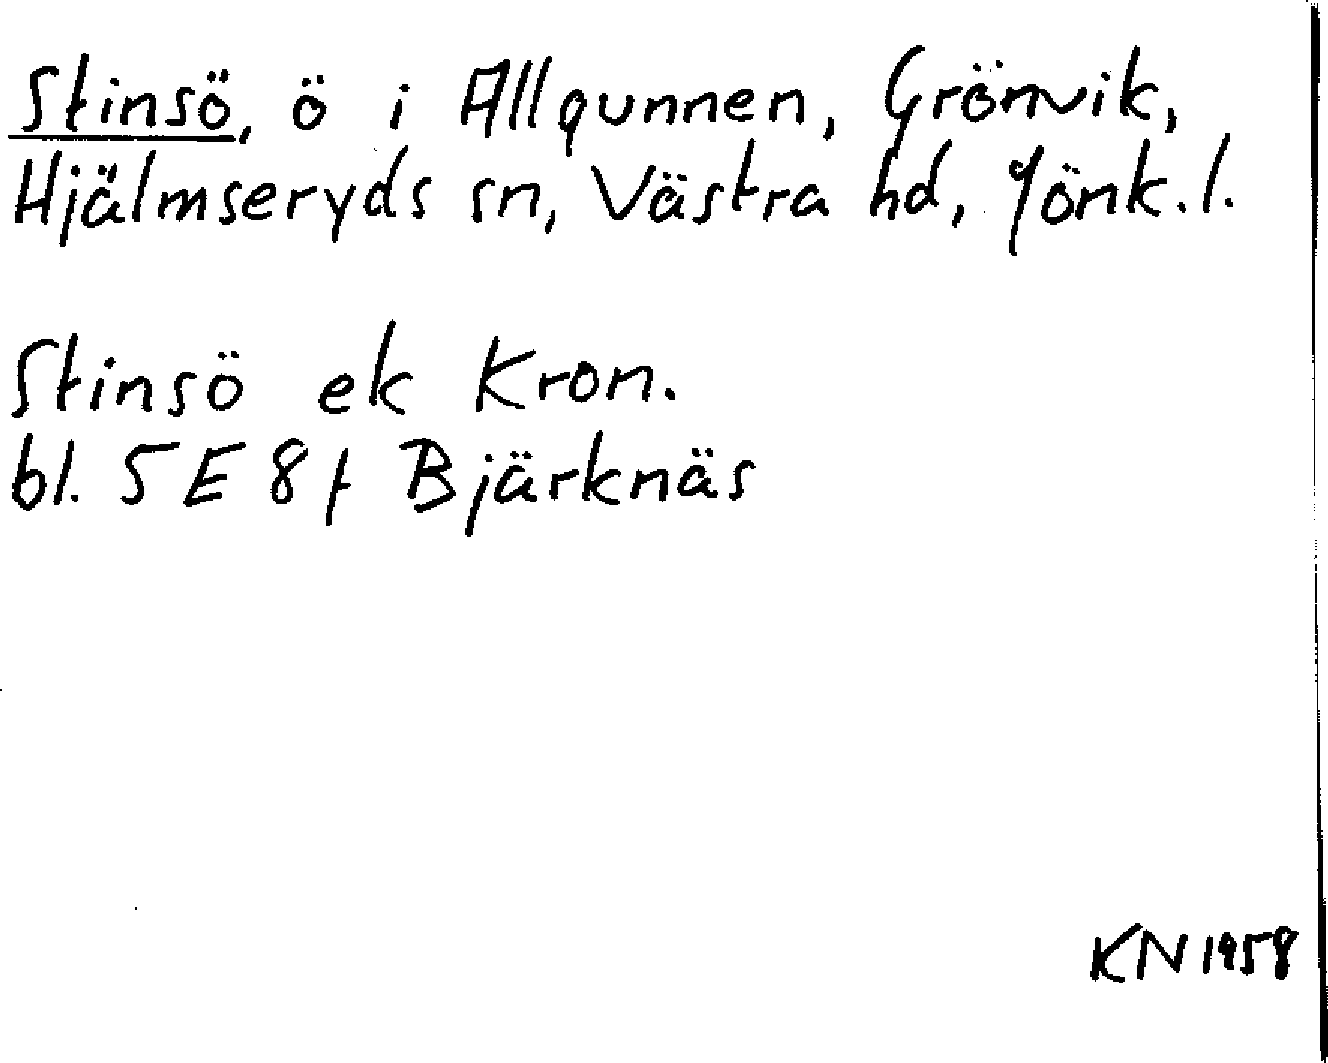 Stinsö, ö i Allgunnen, Grönvik,
Hjälmseryds sn, Västra hd, Jönk.l.
Stinsö ek Kron.
bl. 5E8f Bjärknäs
KN 1958